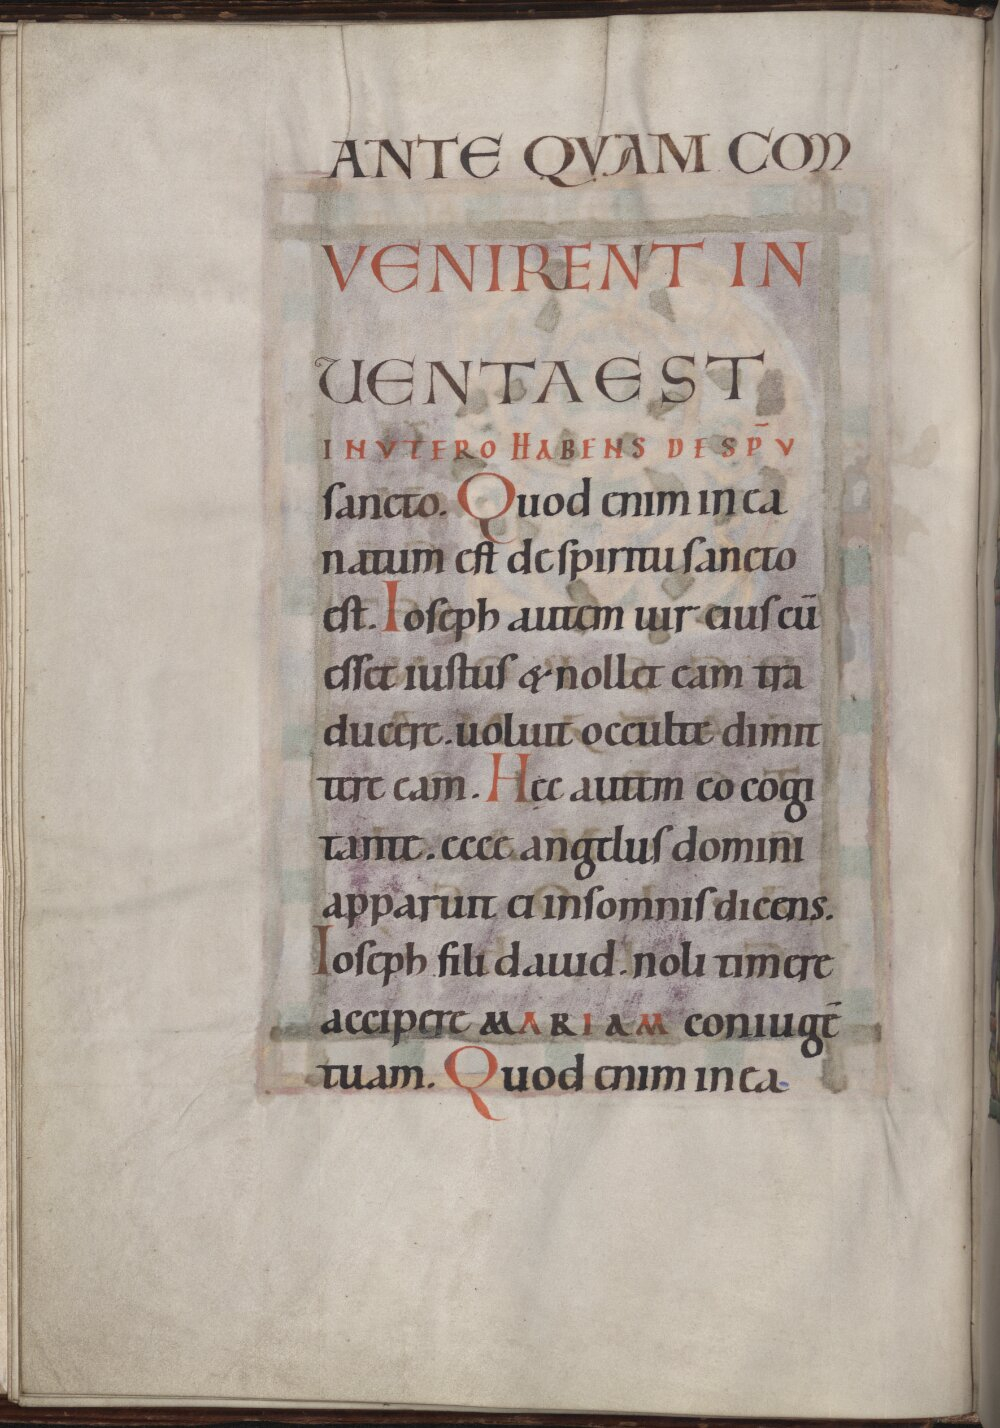 ANTE QVAM CON
VENIRENT IN
UENTA EST
IN VTERO HABENS DE SP̄V
sancto. Quod enim in ea
natum est de spiritu sancto
est. Ioseph autem uir eius cū
esset iustus & nollet eam tra
ducere. uoluit occulte dimit
tere eam. Hec autem eo cogi
tante. ecce angelus domini
apparuit ei in somnis dicens.
Ioseph fili dauid. noli timere
accipere MARIAM coniugē
tuam. Quod enim in ea